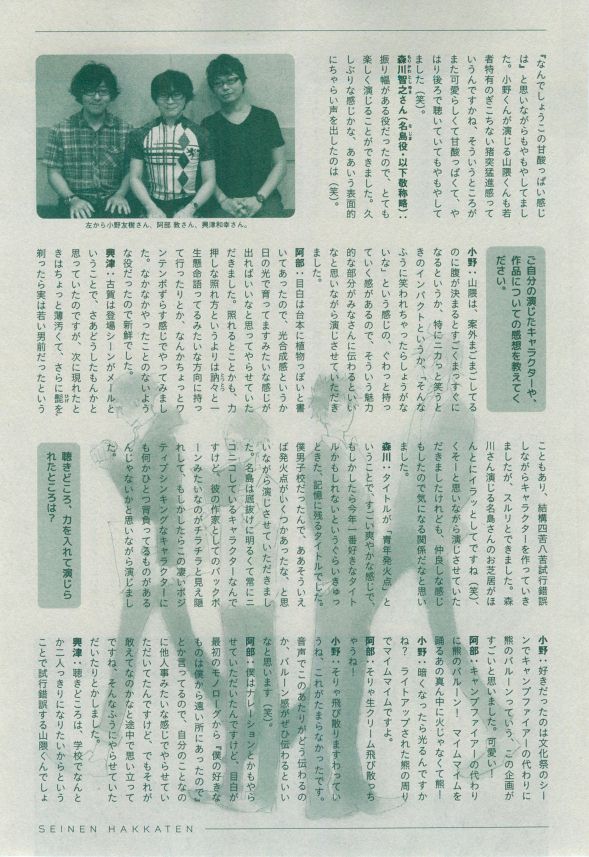 『なんでしょうこの甘酸っぱい感じ
は』と思いながらもやもやしてまし
た。小野くんが演じる山隈くんも若
者特有のぎこちない猪突猛進感って
いうんですかね、そういうところが
また可愛らしくて甘酸っぱくて、や
はり後ろで聴いていてもやもやして
ました（笑）。
森川智之さん（名島役・以下敬称略）：
振り幅がある役だったので、とても
楽しく演じることができました。久
しぶりな感じかな、ああいう表面的
にちゃらい声を出したのは（笑）。
左から小野友樹さん、阿部 敦さん、興津和幸さん。
ご自分の演じたキャラクターや、
作品についての感想を教えてく
ださい。
小野：山隈は、案外まごまごしてる
のに腹が決まるとすごくまっすぐに
なるというか、特にニカっと笑うと
きのインパクトというか、「そんな
ふうに笑われちゃったらしょうがな
いな」という感じの、ぐわっと持っ
ていく感があるので、そういう魅力
的な部分がみなさんに伝わるといい
なと思いながら演じさせていただき
ました。
阿部：目白は台本に植物っぽいと書
いてあったので、光合成感というか
日の光で育ってますみたいな感じが
出ればいいなと思ってやらせていた
だきました。照れるとことかも、力
押しな照れ方というよりは訥々と一
生懸命語ってるみたいな方向に持っ
て行ったりとか、なんかちょっとワ
ンテンポずらす感じでやってみまし
た。なかなかやったことのないよう
な役だったので新鮮でした。
興津：古賀は登場シーンがメールと
いうことで、さあどうしたもんかと
思っていたのですが、次に現れたと
きはちょっと薄汚くて、さらに髭を
剃ったら実は若い男前だったという
こともあり、結構四苦八苦試行錯誤
しながらキャラクターを作っていき
ましたが、スルリとできました。森
川さん演じる名島さんのお芝居がほ
んとにイラッとしてですね（笑）、
くそーと思いながら演じさせていた
だきましたけれども、仲良しな感じ
もしたので気になる関係だなと思い
ました。
森川：タイトルが『青年発火点』と
いうことで、すごい爽やかな感じで、
もしかしたら今年一番好きなタイト
ルかもしれないというぐらいきゅっ
ときた、記憶に残るタイトルでした。
僕男子校だったんで、ああそういえ
ば発火点がいくつかあったな、と思
いながら演じさせていただきまし
た。名島は底抜けに明るくて常にニ
コニコしているキャラクターなんで
すけど、彼の作家としてのバックボ
ーンみたいなのがチラチラと見え隠
れして、もしかしたらこの凄いポジ
ティブシンキングなキャラクターに
も何かひとつ背負ってるものがある
んじゃないかと思いながら演じまし
た。
聴きどころ、力を入れて演じら
れたところは？
小野：好きだったのは文化祭のシー
ンでキャンプファイアーの代わりに
熊のバルーンっていう、この企画が
すごいと思いました。可愛い！
阿部：キャンプファイアーの代わり
に熊のバルーン！　マイムマイムを
踊るあの真ん中に火じゃなくて熊！
小野：暗くなったら光るんですか
ね？　ライトアップされた熊の周り
でマイムマイムですよ。
阿部：そりゃ生クリーム飛び散っち
ゃうね！
小野：そりゃ飛び散りますわってい
うね、これがたまらなかったです。
音声でこのあたりがどう伝わるの
か、バルーン感がぜひ伝わるといい
なと思います（笑）。
阿部：僕はナレーションとかもやら
せていただいたんですけど、目白が
最初のモノローグから『僕の好きな
ものは僕から遠い所にあったので』
とか言ってるので、自分のことなの
に他人事みたいな感じでやらせてい
ただいてたんですけど、でもそれが
敢えてなのかなと途中で思い立って
ですね、そんなふうにやらせていた
だいたりとかしました。
興津：聴きどころは、学校でなんと
か二人っきりになりたいからという
ことで試行錯誤する山隈くんでしょ
SEINEN HAKKATEN